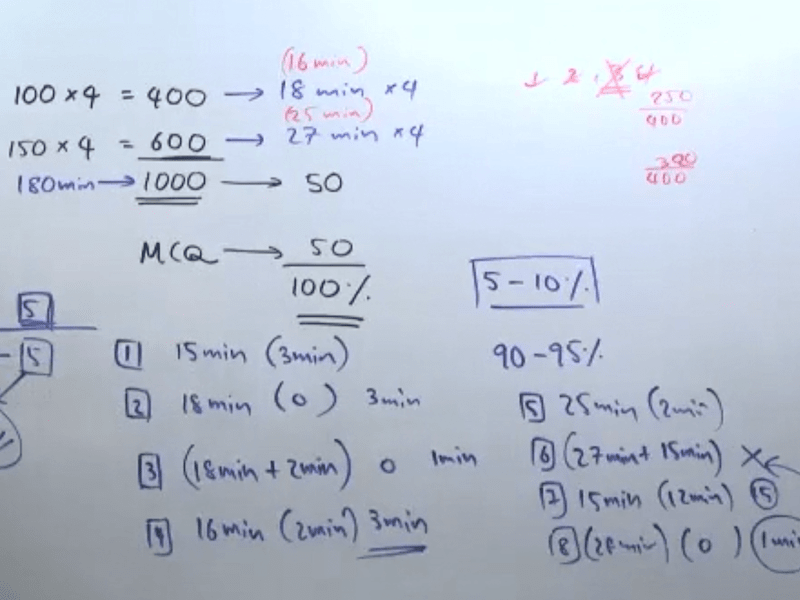 (16 min)
100 × 4 = 400 → 18 min × 4
(25 min)
150 × 4 = 600 → 27 min × 4
180min → 1000 → 50
MCQ → 50
100%
1 2
250
400
400
5 – 10%
90 – 95%
5
– 5
1 15min (3min)
2 18min (0) 3min
3 (18min + 2min) 0 1min
4 16min (2min) 3min
5 25min (2min)
6 (27min + 15min) ×
7 15min (12min) 15
8 (0) 1min